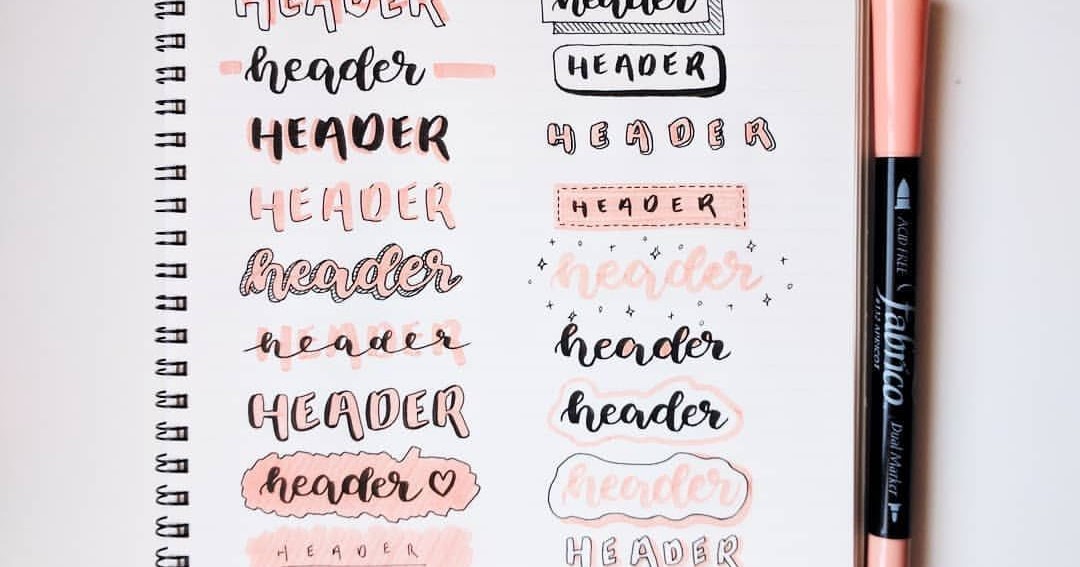 HEADER
header
HEADER
HEADER
header
HEADER
header
HEADER
header ♡
HEADER
header
HEADER
HEADER
HEADER
header
header
header
header
HEADER
ACID FREE
fabrico
#112 APRICOT
Dual Marker